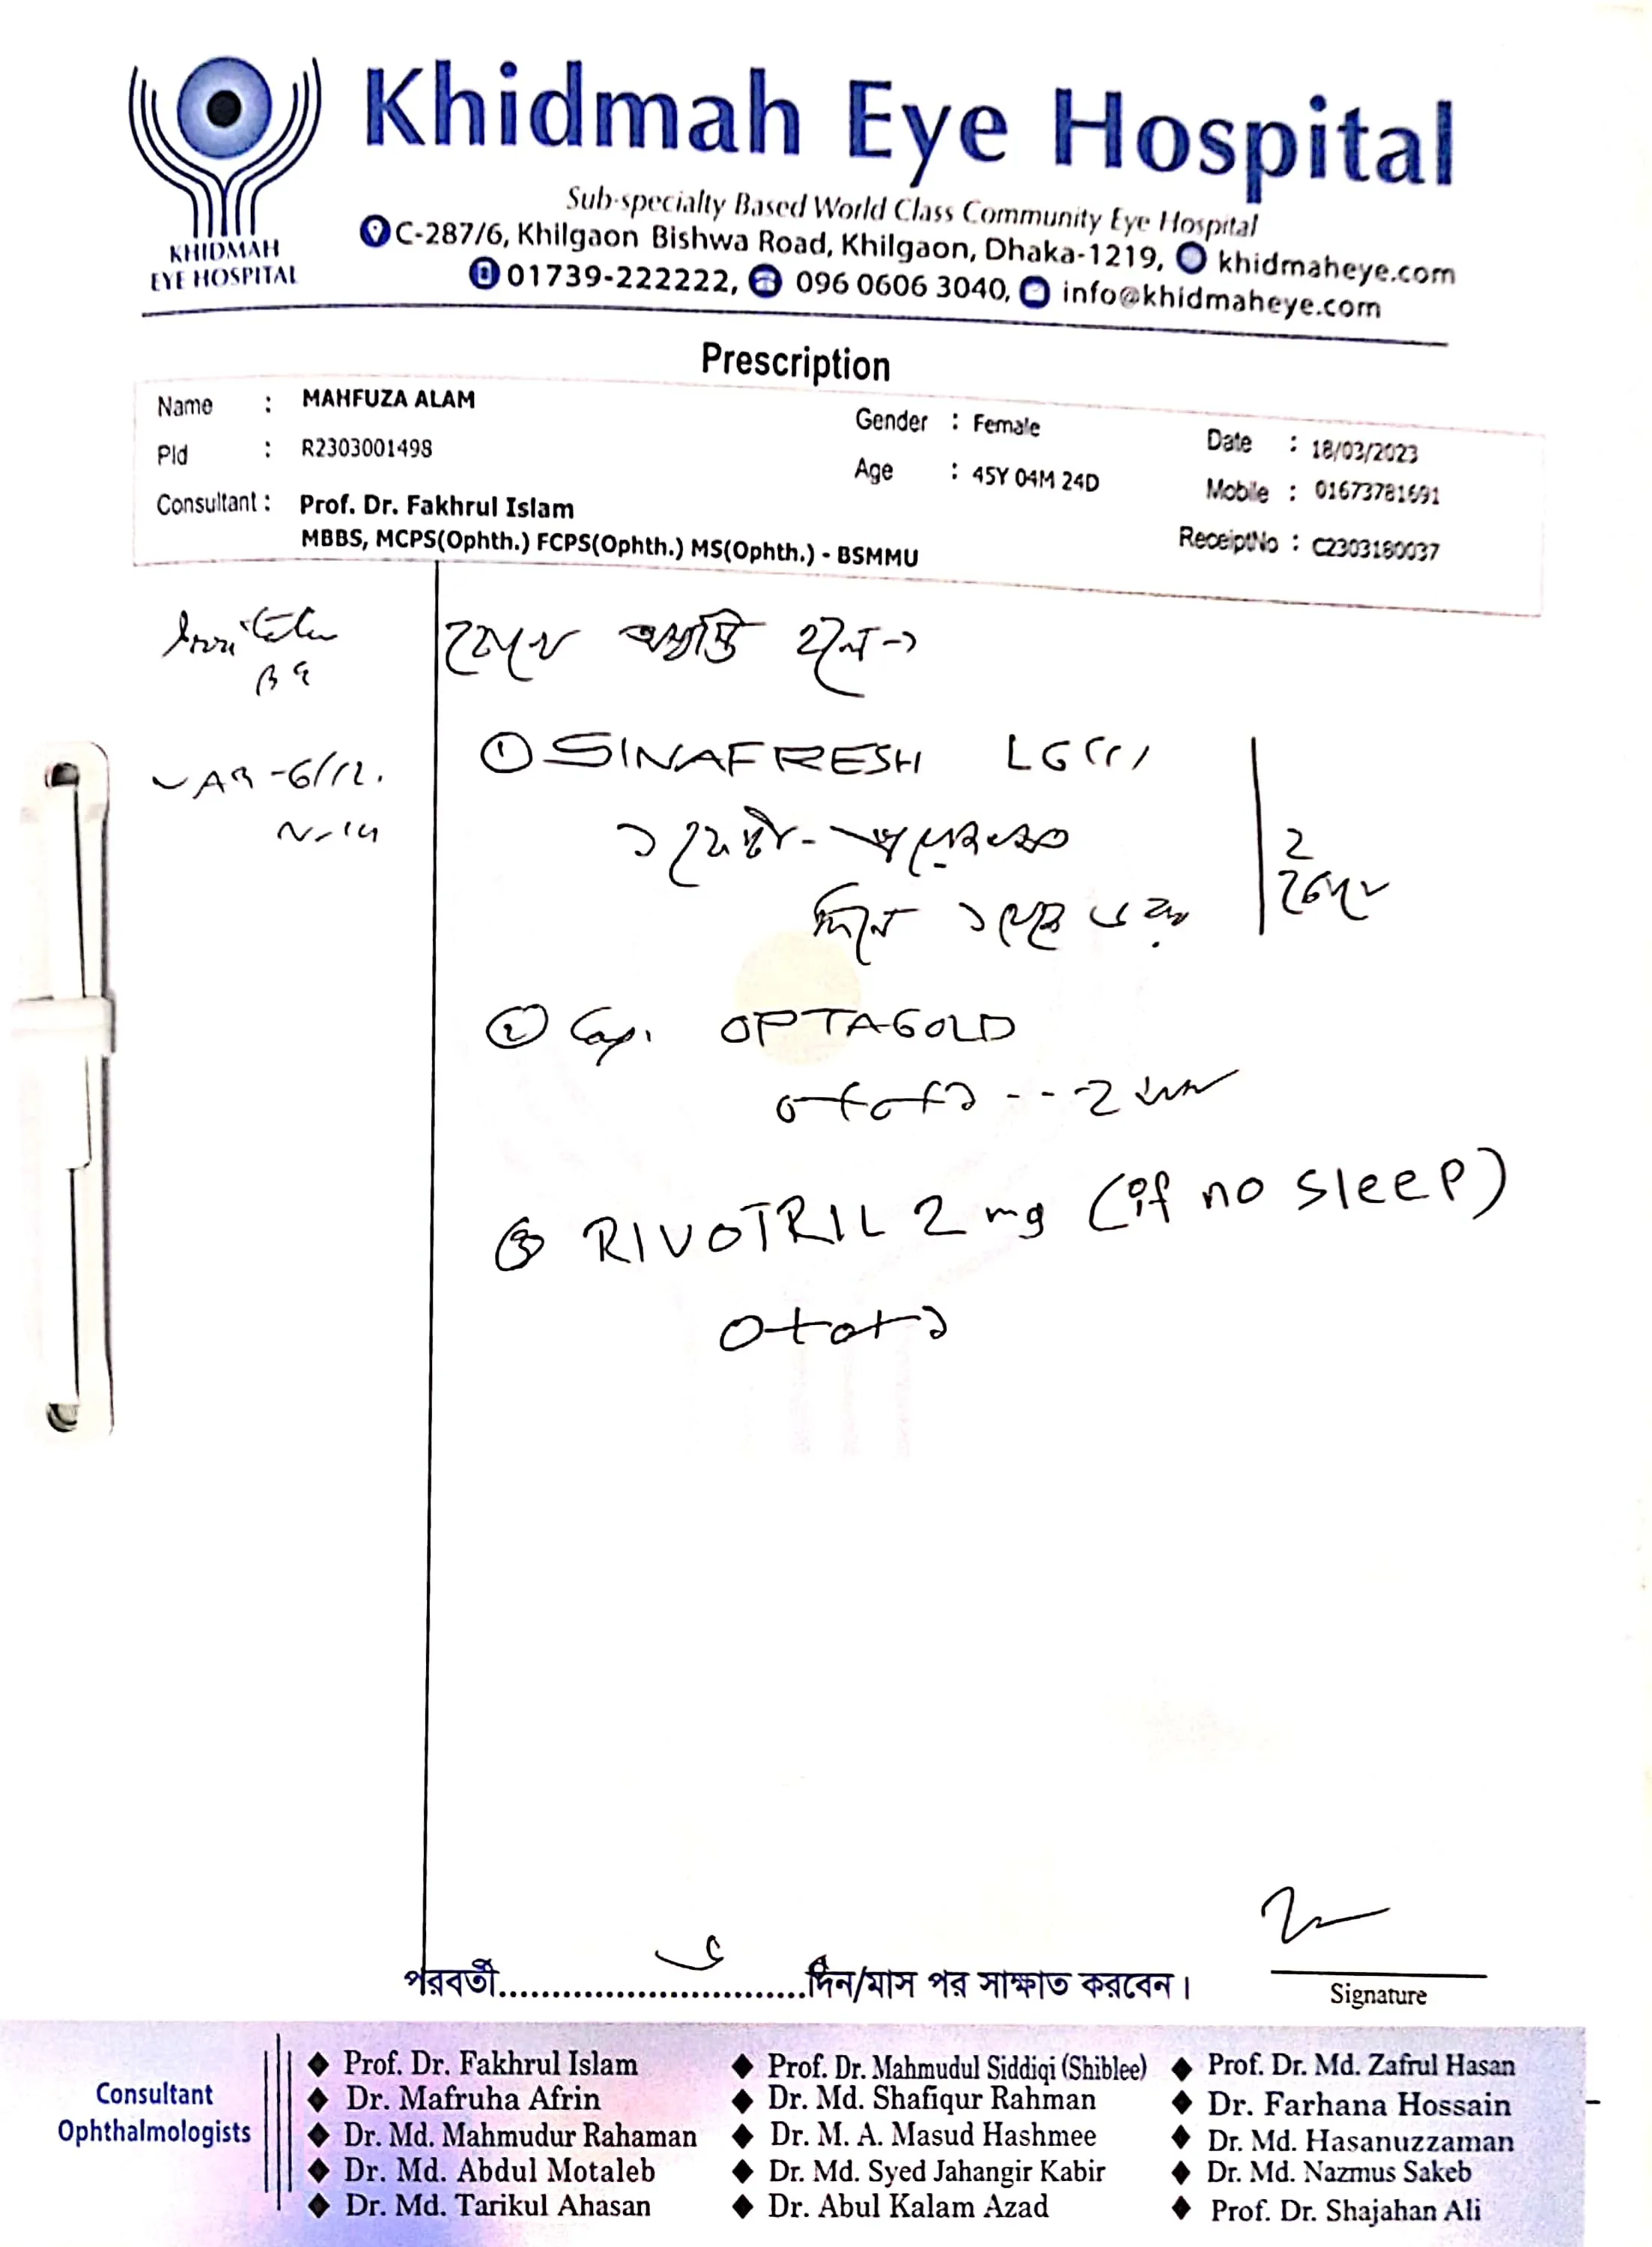 Khidmah Eye Hospital
KHIDMAH
EYE HOSPITAL
Sub-specialty Based World Class Community Eye Hospital
C-287/6, Khilgaon Bishwa Road, Khilgaon, Dhaka-1219, khidmaheye.com
01739-222222, 096 0606 3040, info@khidmaheye.com
Prescription
Name : MAHFUZA ALAM
Gender : Female
Date : 18/03/2023
PId : R2303001498
Age : 45Y 04M 24D
Mobile : 01673781691
Consultant : Prof. Dr. Fakhrul Islam
MBBS, MCPS(Ophth.) FCPS(Ophth.) MS(Ophth.) - BSMMU
ReceiptNo : C2303180037
চোখে অস্বস্তি হলে→
① SINAFRESH
২
চোখে
VAB -6/12.
② Cap. OPTAGOLD
০+০+১ --- ২
③ RIVOTRIL 2 mg (if no sleep)
০+০+১
পরবর্তী..............................দিন/মাস পর সাক্ষাত করবেন।
Signature
Consultant
Ophthalmologists
Prof. Dr. Fakhrul Islam
Dr. Mafruha Afrin
Dr. Md. Mahmudur Rahaman
Dr. Md. Abdul Motaleb
Dr. Md. Tarikul Ahasan
Prof. Dr. Mahmudul Siddiqi (Shiblee)
Dr. Md. Shafiqur Rahman
Dr. M. A. Masud Hashmee
Dr. Md. Syed Jahangir Kabir
Dr. Abul Kalam Azad
Prof. Dr. Md. Zafrul Hasan
Dr. Farhana Hossain
Dr. Md. Hasanuzzaman
Dr. Md. Nazmus Sakeb
Prof. Dr. Shajahan Ali